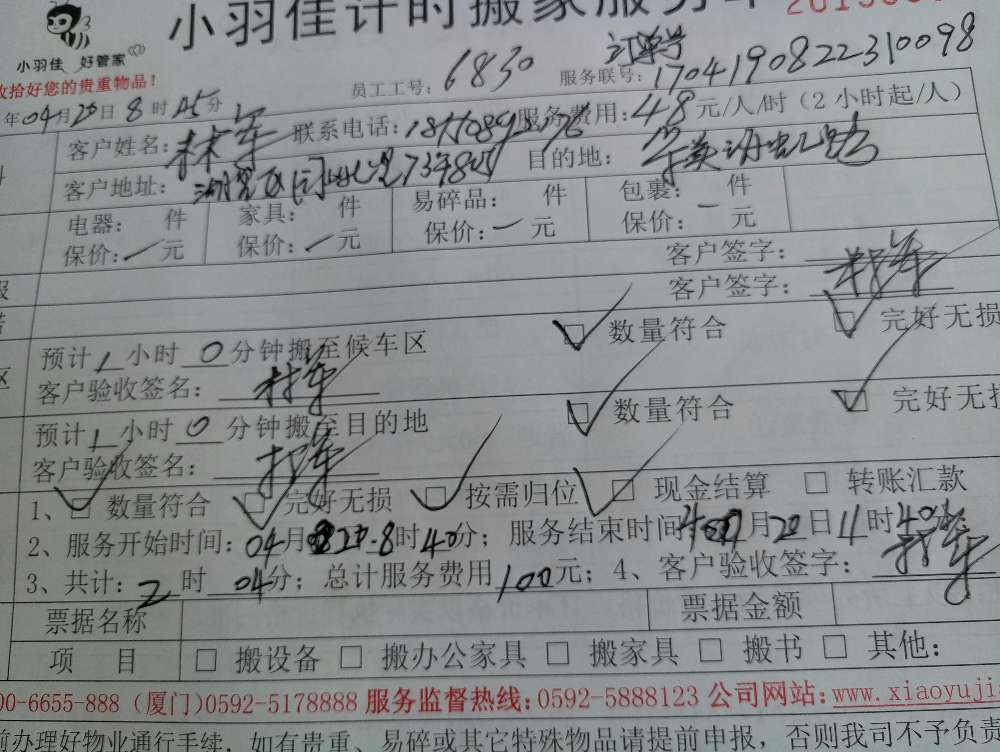 小羽佳计时搬家服务
小羽佳 好管家
收拾好您的贵重物品!
员工工号: 6830 服务联号: 订单号 1704190822310098
年04月20日8时45分
客户姓名: 林军 联系电话: 服务费用: 48元/人/时(2小时起/人)
客户地址: 目的地:
电器: 件 家具: 件 易碎品: 件 包裹: 件
保价: 一元 保价: 一元 保价: 一元 保价: 一元
客户签字:
客户签字: 林军
预计1小时0分钟搬至候车区 数量符合 完好无损
客户验收签名: 林军
预计1小时0分钟搬至目的地 数量符合 完好无损
客户验收签名: 林军
1、 数量符合 完好无损 按需归位 现金结算 转账汇款
2、服务开始时间: 04月20.8时40分; 服务结束时间 月20日11时40
3、共计: 2时04分; 总计服务费用100元; 4、客户验收签字: 林军
票据名称 票据金额
项 目 搬设备 搬办公家具 搬家具 搬书 其他:
00-6655-888 (厦门)0592-5178888 服务监督热线:0592-5888123 公司网站:www.xiaoyujia
前办理好物业通行手续, 如有贵重、易碎或其它特殊物品请提前申报, 否则我司不予负责